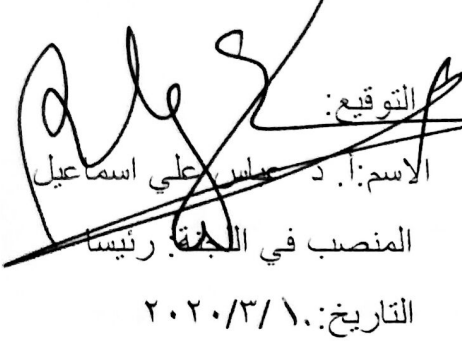 التوقيع:
الاسم:أ. د عباس علي اسماعيل
المنصب في اللجنة: رئيسا
التاريخ: ١٠/٣/٢٠٢٠